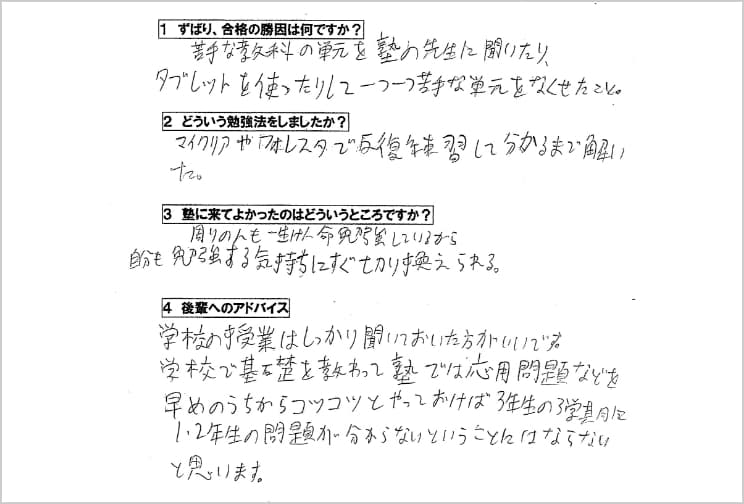 1 ずばり、合格の勝因は何ですか？
苦手な教科の単元を塾の先生に聞いたり、
タブレットを使ったりして一つ一つ苦手な単元をなくせたこと。
2 どういう勉強法をしましたか？
マイクリアやフォレスタで反復練習して分かるまで解い
た。
3 塾に来てよかったのはどういうところですか？
周りの人も一生けん命勉強しているから
自分も勉強する気持ちにすぐ切り換えられる。
4 後輩へのアドバイス
学校の授業はしっかり聞いておいた方がいいです。
学校で基礎を教わって塾では応用問題などを
早めのうちからコツコツとやっておけば3年生の3学期に
1・2年生の問題が分からないということにはならない
と思います。